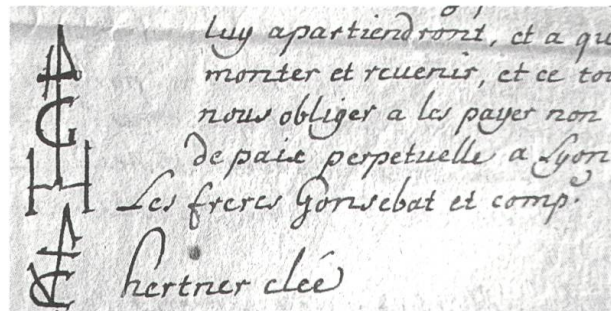 luy apartiendront, et a qu
monter et reuenir, et ce tou
nous obliger a les payer non
de paix perpetuelle a Lyon
Les freres Gonsebat et comp.
hertner cleé